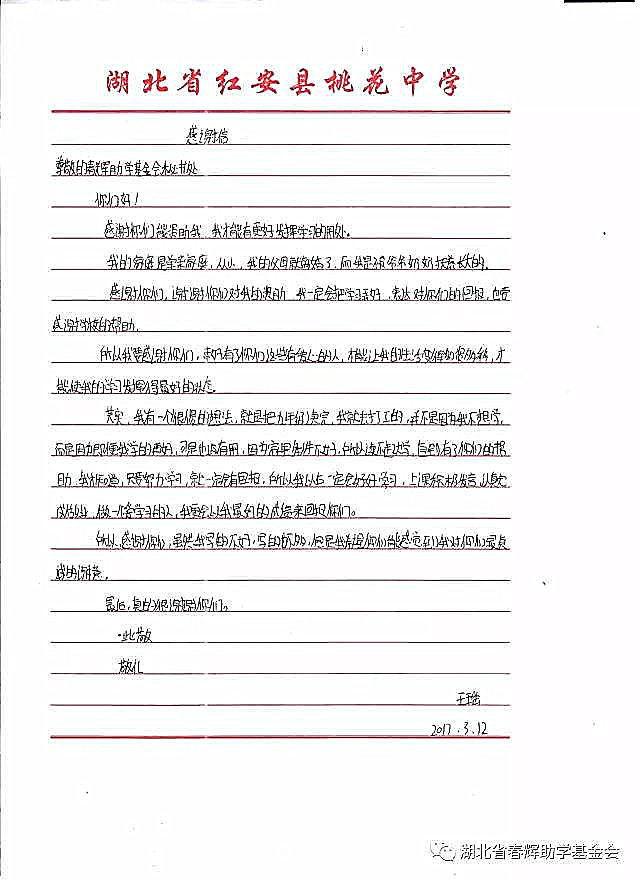 湖北省红安县桃花中学
感谢信
尊敬的春辉助学基金会秘书处
你们好！
感谢你们能资助我，我才能有更好发挥学习的用处。
我的家庭是单亲家庭，从小，我的父母就离婚了，而我是被爷爷奶奶扶养长大的。
感谢你们，谢谢你们对我的援助，我一定会把学习弄好，来达对你们的回报，也要
感谢学校的帮助。
所以我要感谢你们，幸好有了你们这些有爱心的人，才能让我的生活变得如此多彩，才
能使我的学习发挥得最好的状态。
其实，我有一个很傻的想法，就是把九年级读完，我就去打工的，并不是因为我不想学，
而是因为即便我学的再好，可是也没有用，因为家里条件不好，所以读不起大学，自从有了你们的帮
助，我知道，只要努力学习，就一定会有回报，所以我以后一定会好好学习，上课积极发言，认真
做作业，做一个爱学习的人，我要会以我最好的成绩来回报你们。
所以，感谢你们，虽然我写的不好，写的不多，但是我希望你们能感觉到我对你们最真
诚的谢意。
最后，真的很谢谢你们。
此致
敬礼
王瑶
2017.3.12
湖北省春辉助学基金会